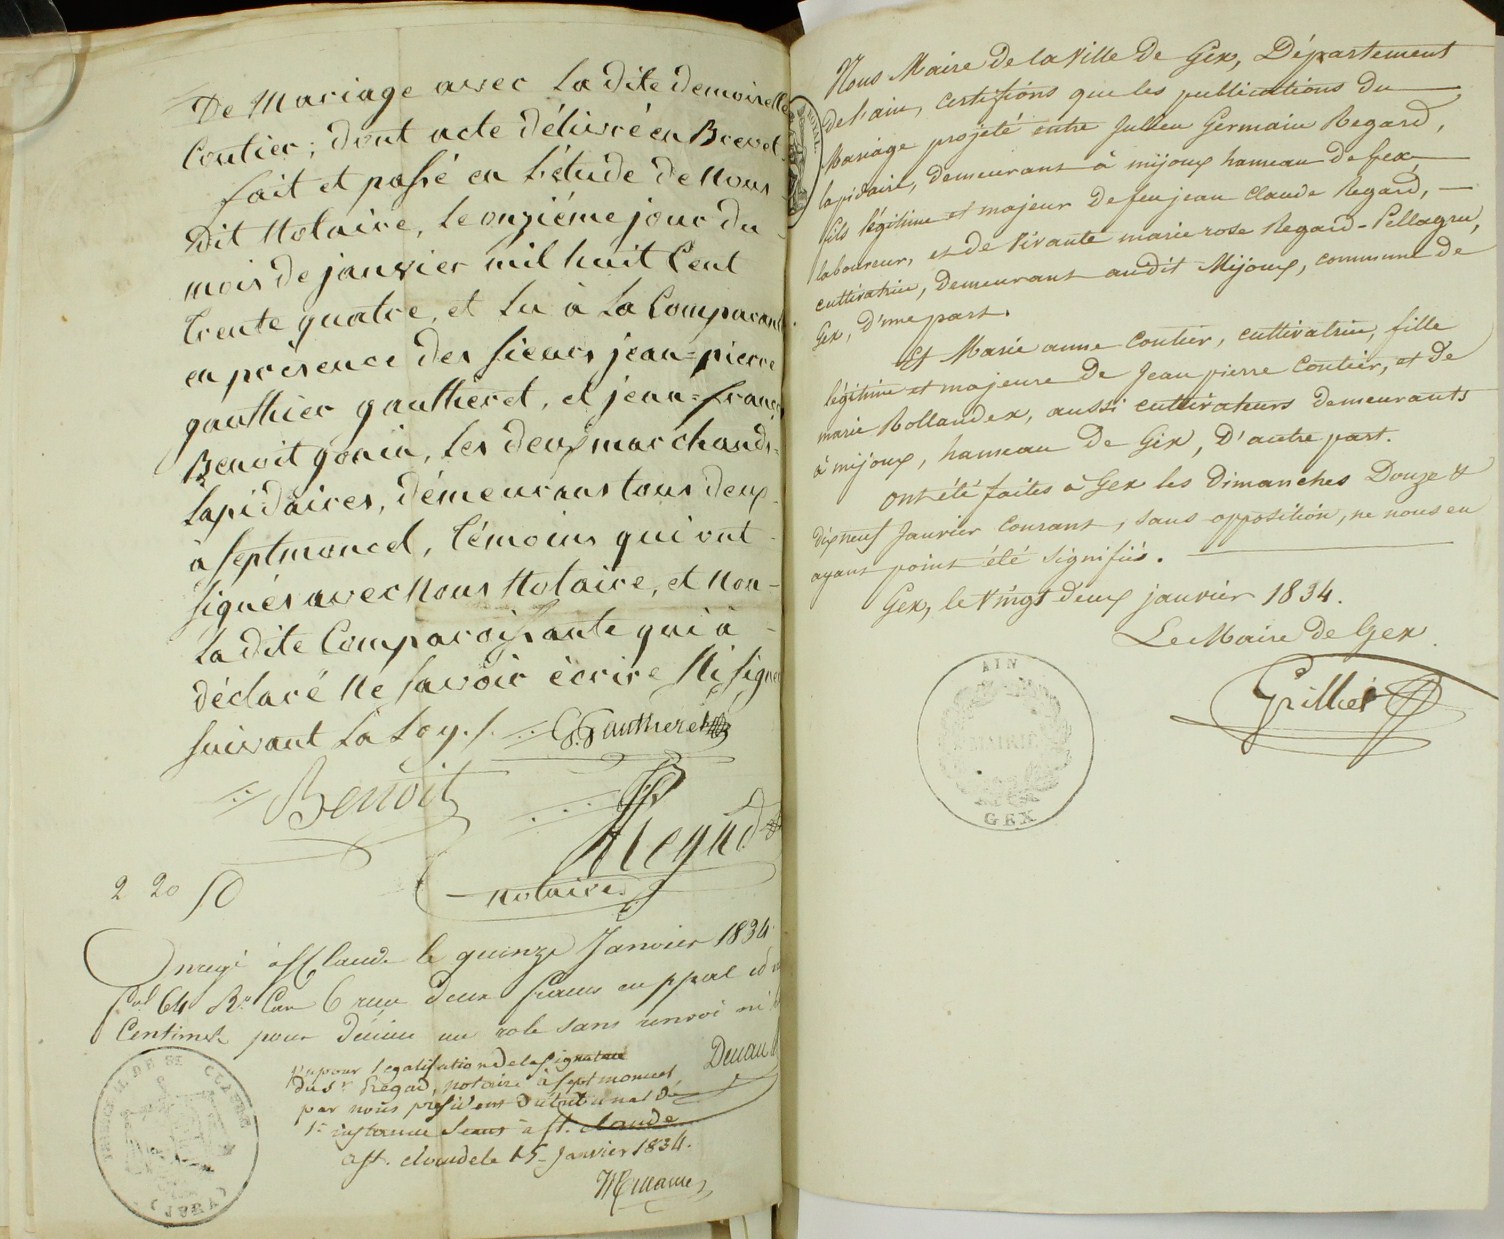 De Mariage avec La dite demoiselle
Coutier; dont acte délivré en Brevet.
fait et passé en L'étude de Nous
Dit Notaire, Le onziéme jour du
mois de janvier mil huit Cent
trente quatre, et Lu à La Comparante
en présence des sieurs jean=pierre
gauthier gautheret, et jean=françois
Benoit gonin, Les deux marchands
Lapidaires, démeurans tous deux
à Septmoncel, témoins qui ont
signés avec Nous Notaire, et Non
La dite Comparoissante qui à
déclaré Ne savoir écrire Ni signer
suivant La Loy./. G. Gautheret
Benoit
Regad
Notaire
2 20 50
à St Claude le quinze Janvier 1834
fol 64 Ro Case 6 reçu deux francs en ppal
Centimes pour Décime un role sans renvoi ni
vu pour Légalisation de la signature
du Sr Regad, notaire à Septmoncel,
par nous président du tribunal de
1e instance séant à St. claude
à St. claude le 15 Janvier 1834.
Nous Maire de la Ville de Gex, Département
de l'ain, Certifions que les publications du
Mariage projeté entre Julien Germain Regard,
lapidaire, demeurant à mijoux hameau de Gex
fils légitime et majeur de feu jean Claude Regard,
laboureur, et de Vivante marie rose Regard-Pellagru,
cultivatrice, demeurant audit Mijoux, commune de
Gex, d'une part.
Et Marie anne Coutier, cultivatrice, fille
légitime et majeure de Jean pierre Coutier, et de
marie Rollandex, aussi cultivateurs demeurants
à mijoux, hameau de Gex, D'autre part.
Ont été faites à Gex les Dimanches Douze &
dix neuf Janvier Courant, sans opposition, ne nous en
ayant point été signifiés.
Gex, le Vingt deux janvier 1834.
Le Maire de Gex
AIN
MAIRIE
GEX